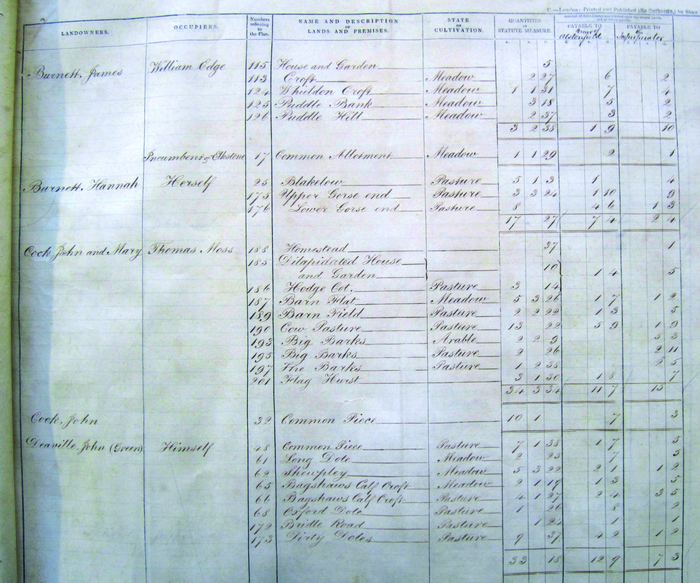 LANDOWNERS. OCCUPIERS. Numbers referring to the Plan. NAME AND DESCRIPTION OF LANDS AND PREMISES. STATE OF CULTIVATION. QUANTITIES IN STATUTE MEASURE. PAYABLE TO PAYABLE TO
Burnett, James William Edge 115 House and Garden 5
113 Croft Meadow 2 27 6 2
124 Whieldon Croft Meadow 1 1 31 7 4
125 Puddle Bank Meadow 3 18 5 2
126 Puddle Hill Meadow 2 37 3 2
3 2 35 1 9 10
Incumbent of Elkstone 17 Common Allotment Meadow 1 1 29 2 1
Burnett, Hannah Herself 25 Blakelow Pasture 5 1 3 1 4
175 Upper Gorse end Pasture 3 3 24 1 10 9
176 Lower Gorse end Pasture 8 4 6 1 3
17 27 7 4 2 4
Cock, John and Mary Thomas Moss 188 Homestead 37 1
185 Dilapidated House
and Garden 10 1 4 5
186 Hodge Cot. Pasture 3 14
187 Barn Flat Meadow 5 3 26 1 7 1 2
189 Barn Field Pasture 2 2 22 1 3 5
190 Cow Pasture Pasture 13 22 5 9 1 9
193 Big Barks Arable 2 2 9
195 Big Barks Pasture 2 26 2 11
197 Fire Barks Pasture 1 2 35
201 Flag Hurst 3 1 30 1 8 7
34 3 34 11 7 13
Cock, John 32 Common Piece 10 1 7 3
Deaville, John (Green) Himself 48 Common Piece Pasture 7 1 35 1 7 5
61 Long Dole Meadow 2 25 5
62 Shewpley Meadow 5 3 22 2 1 1 2
65 Bagshaws Calf Croft Meadow 2 1 19 1 3 5
66 Bagshaws Calf Croft Pasture 4 1 27 2 4 3 5
68 Oxford Dole Pasture 1 26 8 2
172 Bridle Road Pasture 1 24 1 1
173 Dirty Doles Pasture 9 37 4 2 1 2
33 15 12 9 7 3